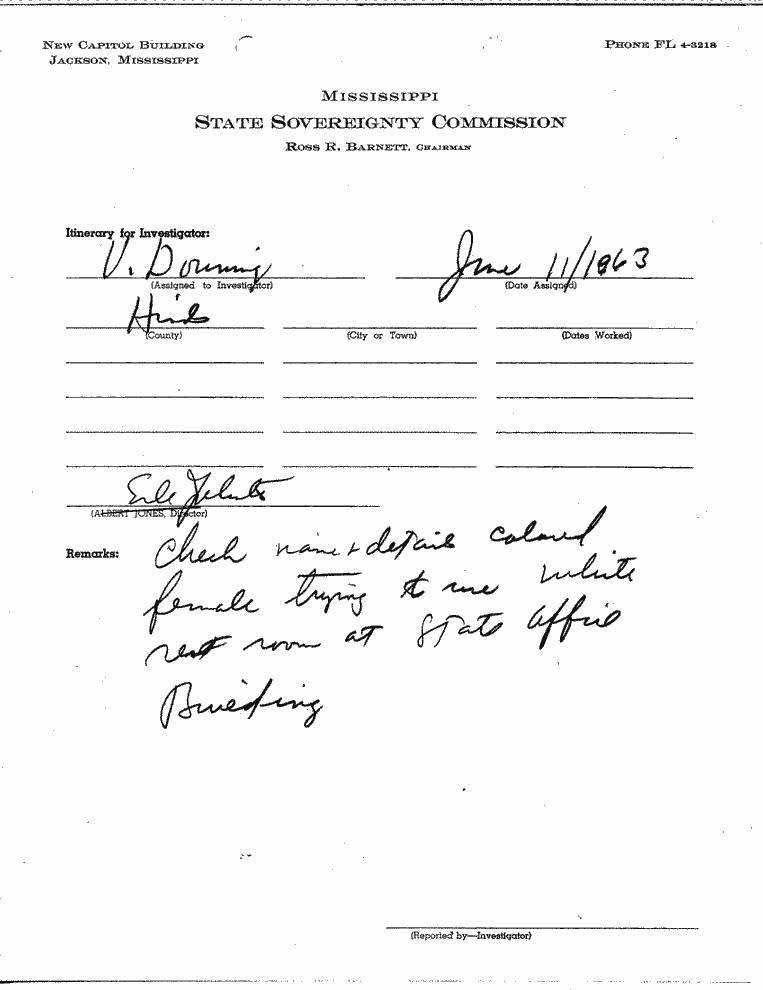 NEW CAPITOL BUILDING
JACKSON, MISSISSIPPI
PHONE FL 4-3218
MISSISSIPPI
STATE SOVEREIGNTY COMMISSION
ROSS R. BARNETT, CHAIRMAN
Itinerary for Investigator:
V. Downing June 11/1963
(Assigned to Investigator) (Date Assigned)
Hinds
(County) (City or Town) (Dates Worked)
Erle Johnston
(ALBERT JONES, Director)
Remarks: Check name & details colored
female trying to use white
rest room at State Office
Building
(Reported by—Investigator)